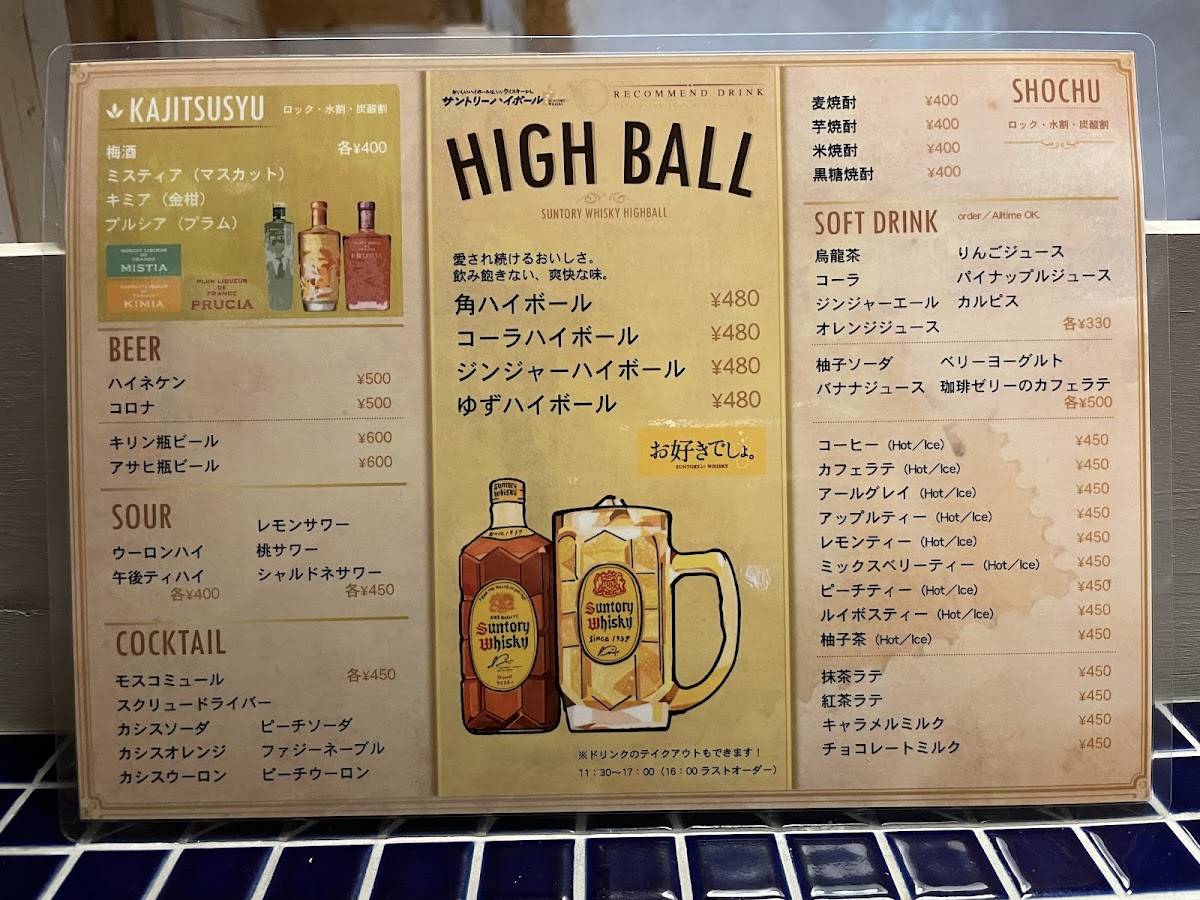 KAJITSUSYU ロック・水割・炭酸割
梅酒 各¥400
ミスティア（マスカット）
キミア（金柑）
プルシア（プラム）
MUSCAT LIQUEUR
DE
FRANCE
MISTIA
FRANCE
KIMIA
PLUM LIQUEUR
DE
FRANCE
PRUCIA
PRUCIA
BEER
ハイネケン ¥500
コロナ ¥500
キリン瓶ビール ¥600
アサヒ瓶ビール ¥600
SOUR
ウーロンハイ
午後ティハイ
各¥400
レモンサワー
桃サワー
シャルドネサワー
各¥450
COCKTAIL
モスコミュール 各¥450
スクリュードライバー
カシスソーダ ピーチソーダ
カシスオレンジ ファジーネーブル
カシスウーロン ピーチウーロン
サントリーハイボール
RECOMMEND DRINK
HIGH BALL
SUNTORY WHISKY HIGHBALL
愛され続けるおいしさ。
飲み飽きない、爽快な味。
角ハイボール ¥480
コーラハイボール ¥480
ジンジャーハイボール ¥480
ゆずハイボール ¥480
お好きでしょ。
SUNTORY WHISKY
Suntory
Whisky
Since 1937
Suntory
Whisky
Suntory
Whisky
Since 1937
※ドリンクのテイクアウトもできます！
11：30〜17：00（16：00 ラストオーダー）
SHOCHU
ロック・水割・炭酸割
麦焼酎 ¥400
芋焼酎 ¥400
米焼酎 ¥400
黒糖焼酎 ¥400
SOFT DRINK order／Alltime OK.
烏龍茶 りんごジュース
コーラ パイナップルジュース
ジンジャーエール カルピス
オレンジジュース 各¥330
柚子ソーダ ベリーヨーグルト
バナナジュース 珈琲ゼリーのカフェラテ
各¥500
コーヒー（Hot／Ice） ¥450
カフェラテ（Hot／Ice） ¥450
アールグレイ（Hot／Ice） ¥450
アップルティー（Hot／Ice） ¥450
レモンティー（Hot／Ice） ¥450
ミックスベリーティー（Hot／Ice） ¥450
ピーチティー（Hot／Ice） ¥450
ルイボスティー（Hot／Ice） ¥450
柚子茶（Hot／Ice） ¥450
抹茶ラテ ¥450
紅茶ラテ ¥450
キャラメルミルク ¥450
チョコレートミルク ¥450